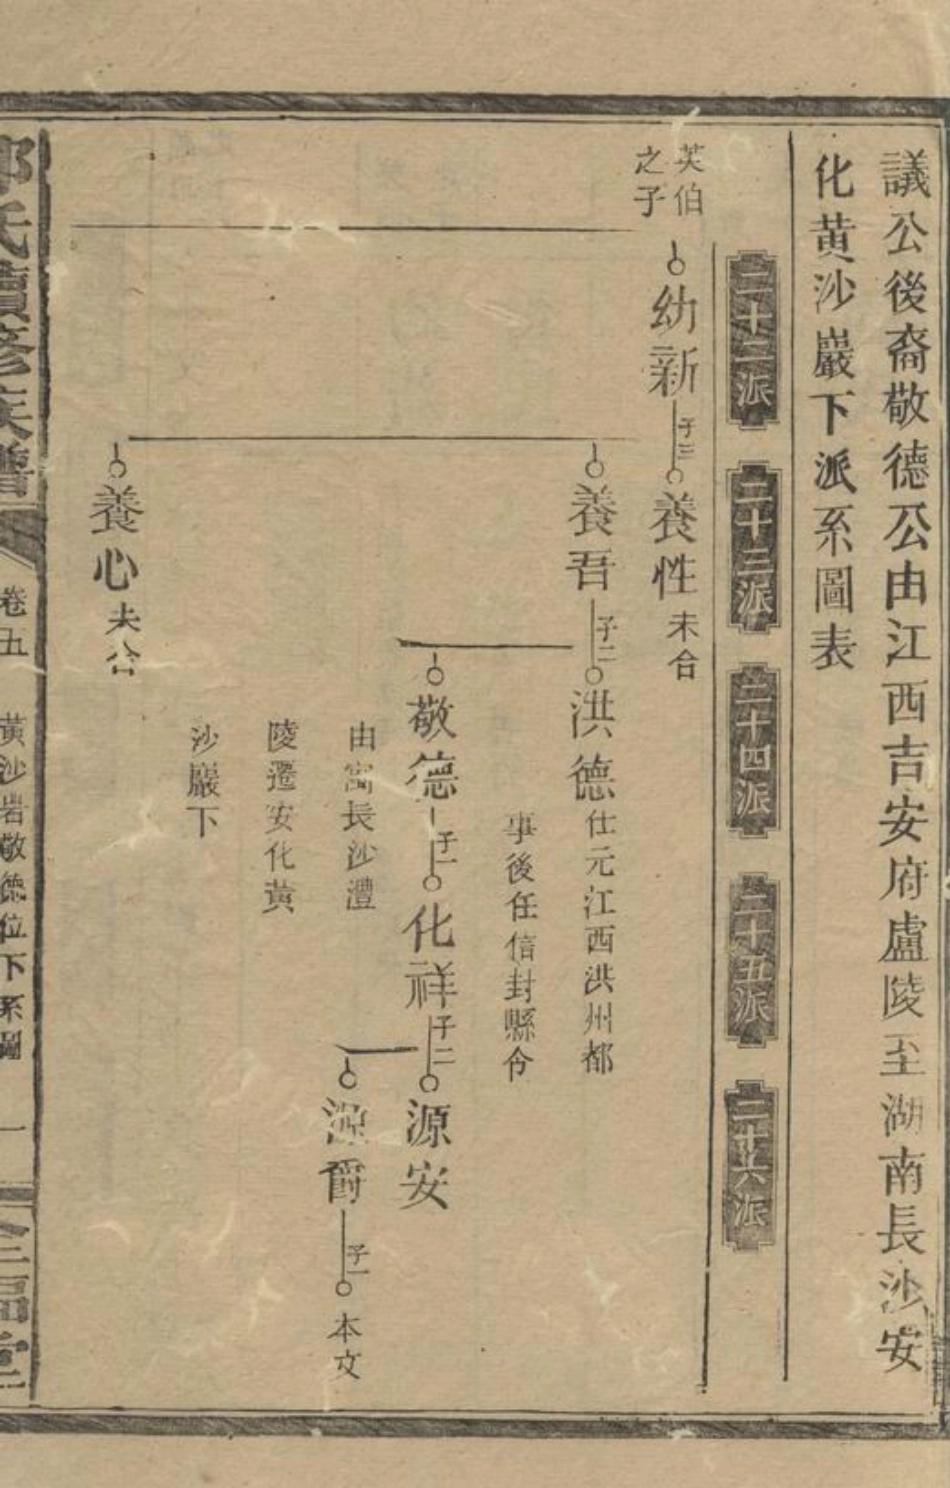 議公後裔敬德公由江西吉安府盧陵至湖南長沙安
化黄沙巖下派系圖表
二十二派
二十三派
二十四派
二十五派
二十六派
英伯
之子
幼新
子三
養性
未合
養吾
子二
洪德
仕元江西洪州都
事後任信封縣令
敬德
子一
由寓長沙澧
陵遷安化黄
沙巖下
化祥
子二
源安
源爵
子一
本文
養心
未合
氏續修族譜
卷五
黄沙岩敬德位下系圖
一
福堂